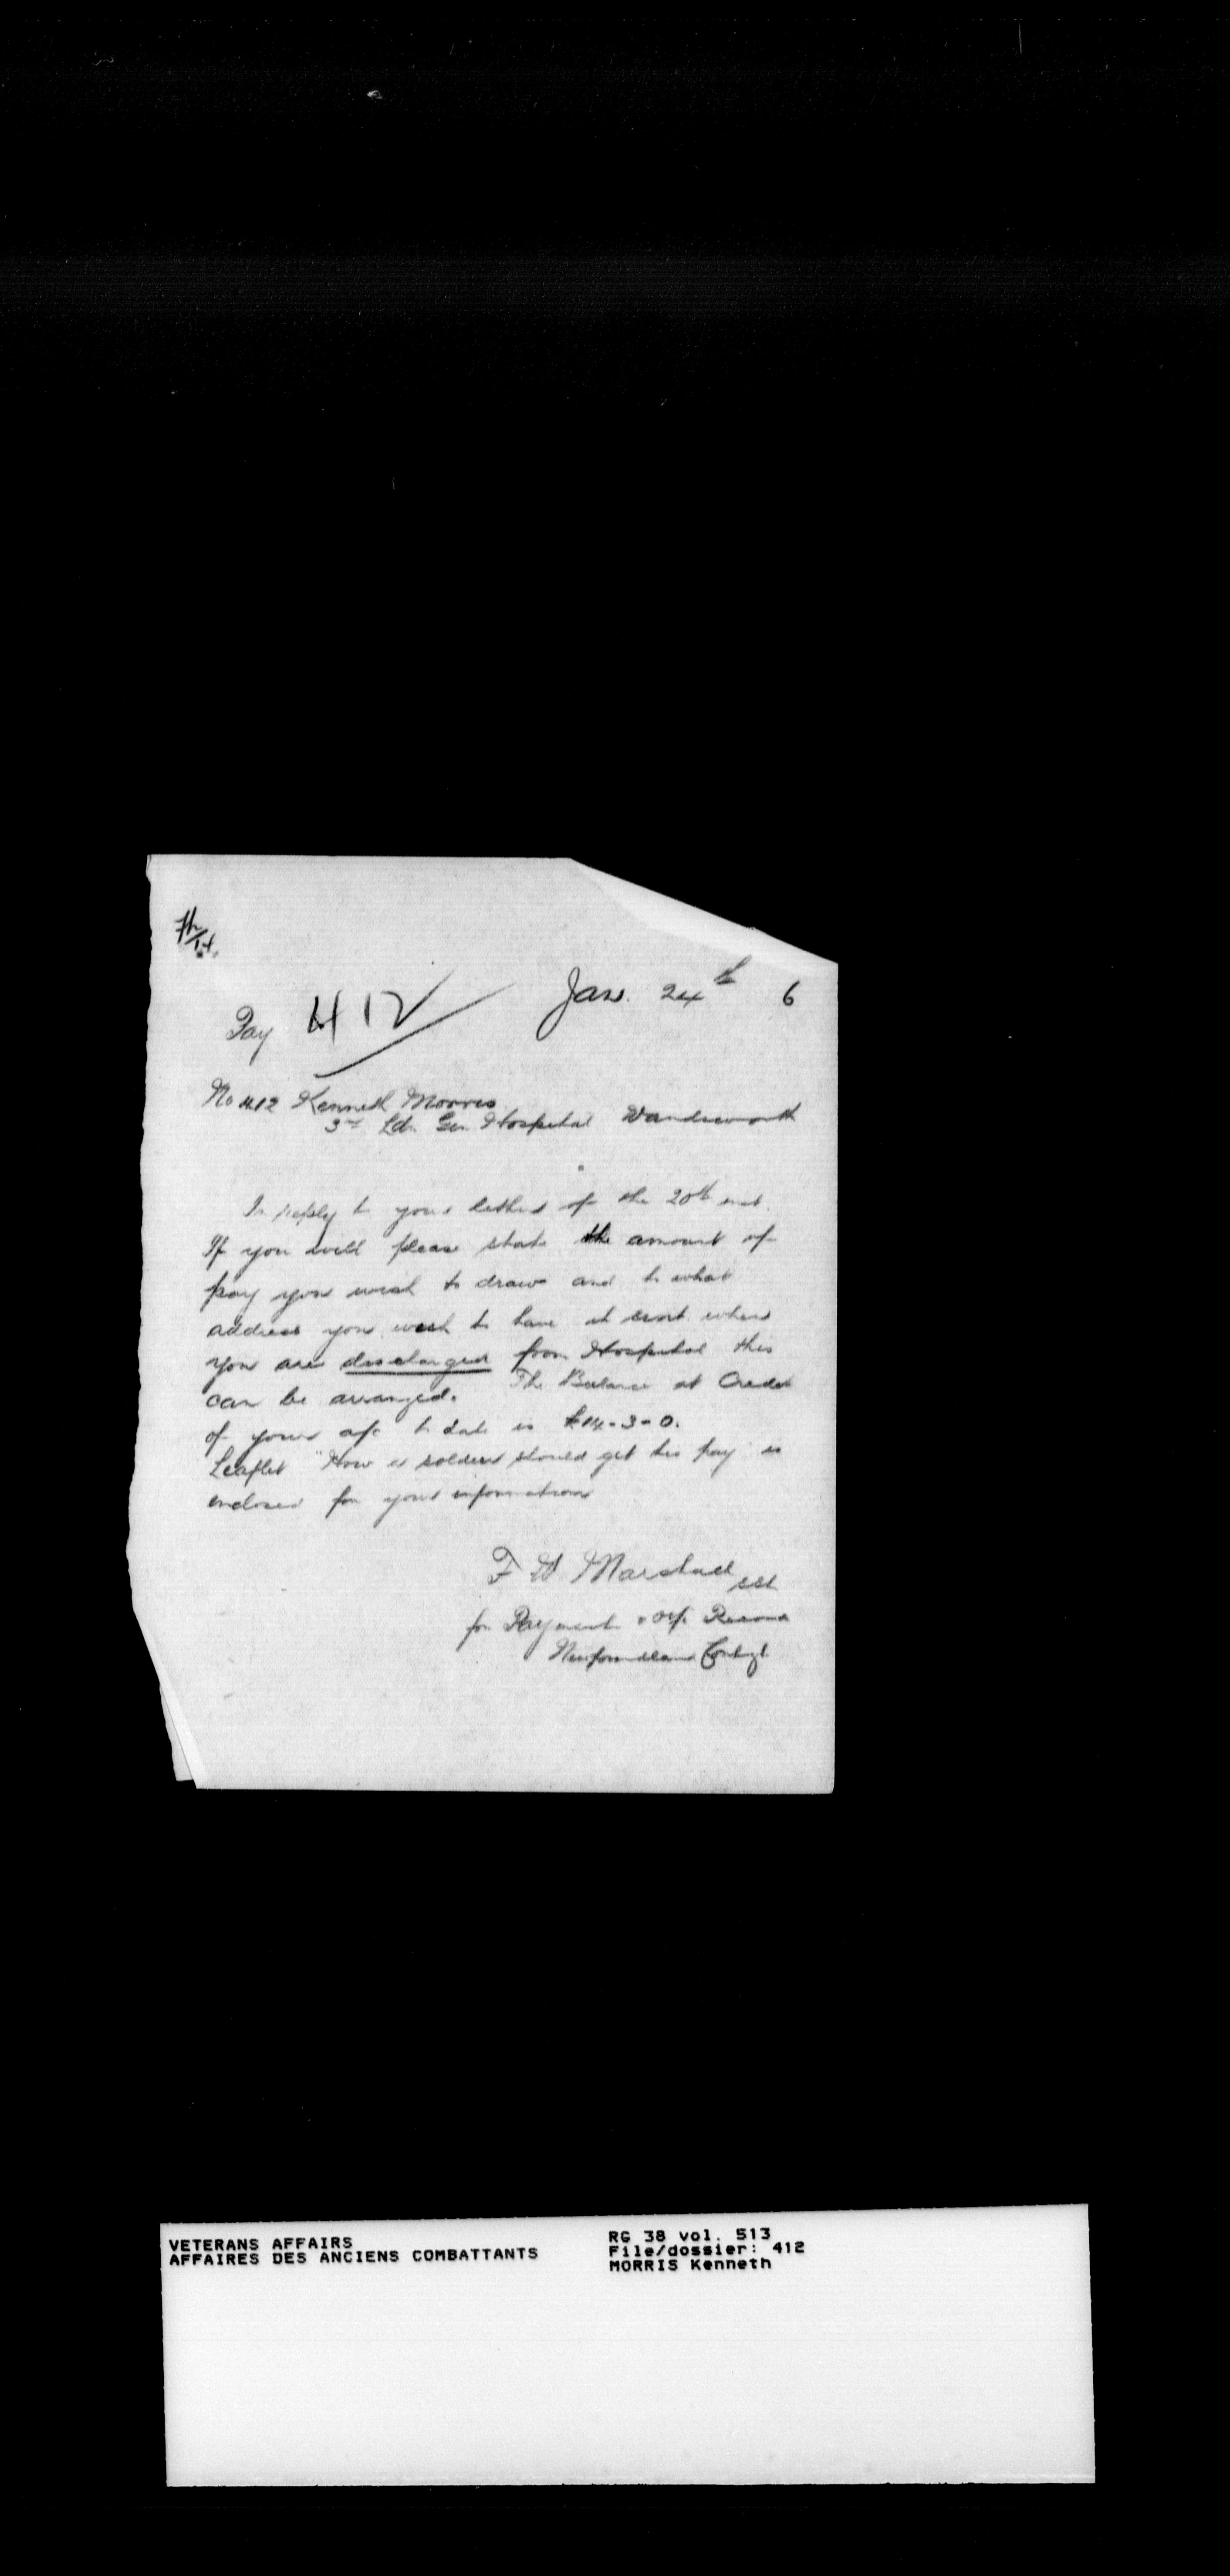 Jan. 24th 6
Pay 412
No 412 Kenneth Morris
3rd Ldn Gen Hospital Wandsworth
In reply to your letter of the 20th inst.
If you will please state the amount of
pay you wish to draw and to what
address you wish to have it sent when
you are discharged from Hospital this
can be arranged. The Balance at Credit
of your a/c to date is £14-3-0.
Leaflet "How a soldier should get his pay" is
enclosed for your information
F W Marshall
for Paymaster & o/i Records
Newfoundland Contgt
VETERANS AFFAIRS
AFFAIRES DES ANCIENS COMBATTANTS
RG 38 vol. 513
File/dossier: 412
MORRIS Kenneth